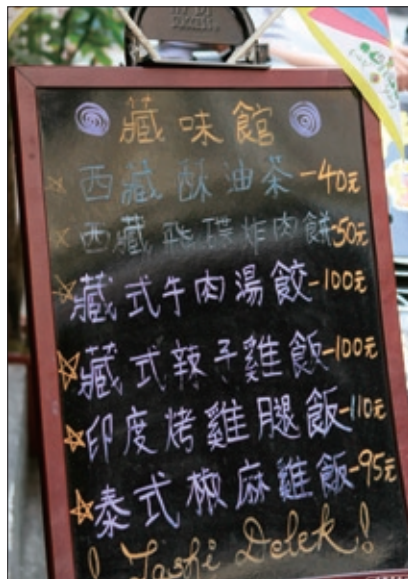 藏味館
西藏酥油茶-40元
西藏飛碟炸肉餅-50元
藏式牛肉湯餃-100元
藏式辣子雞飯-100元
印度烤雞腿飯-110元
泰式椒麻雞飯-95元
! Tashi Delek!